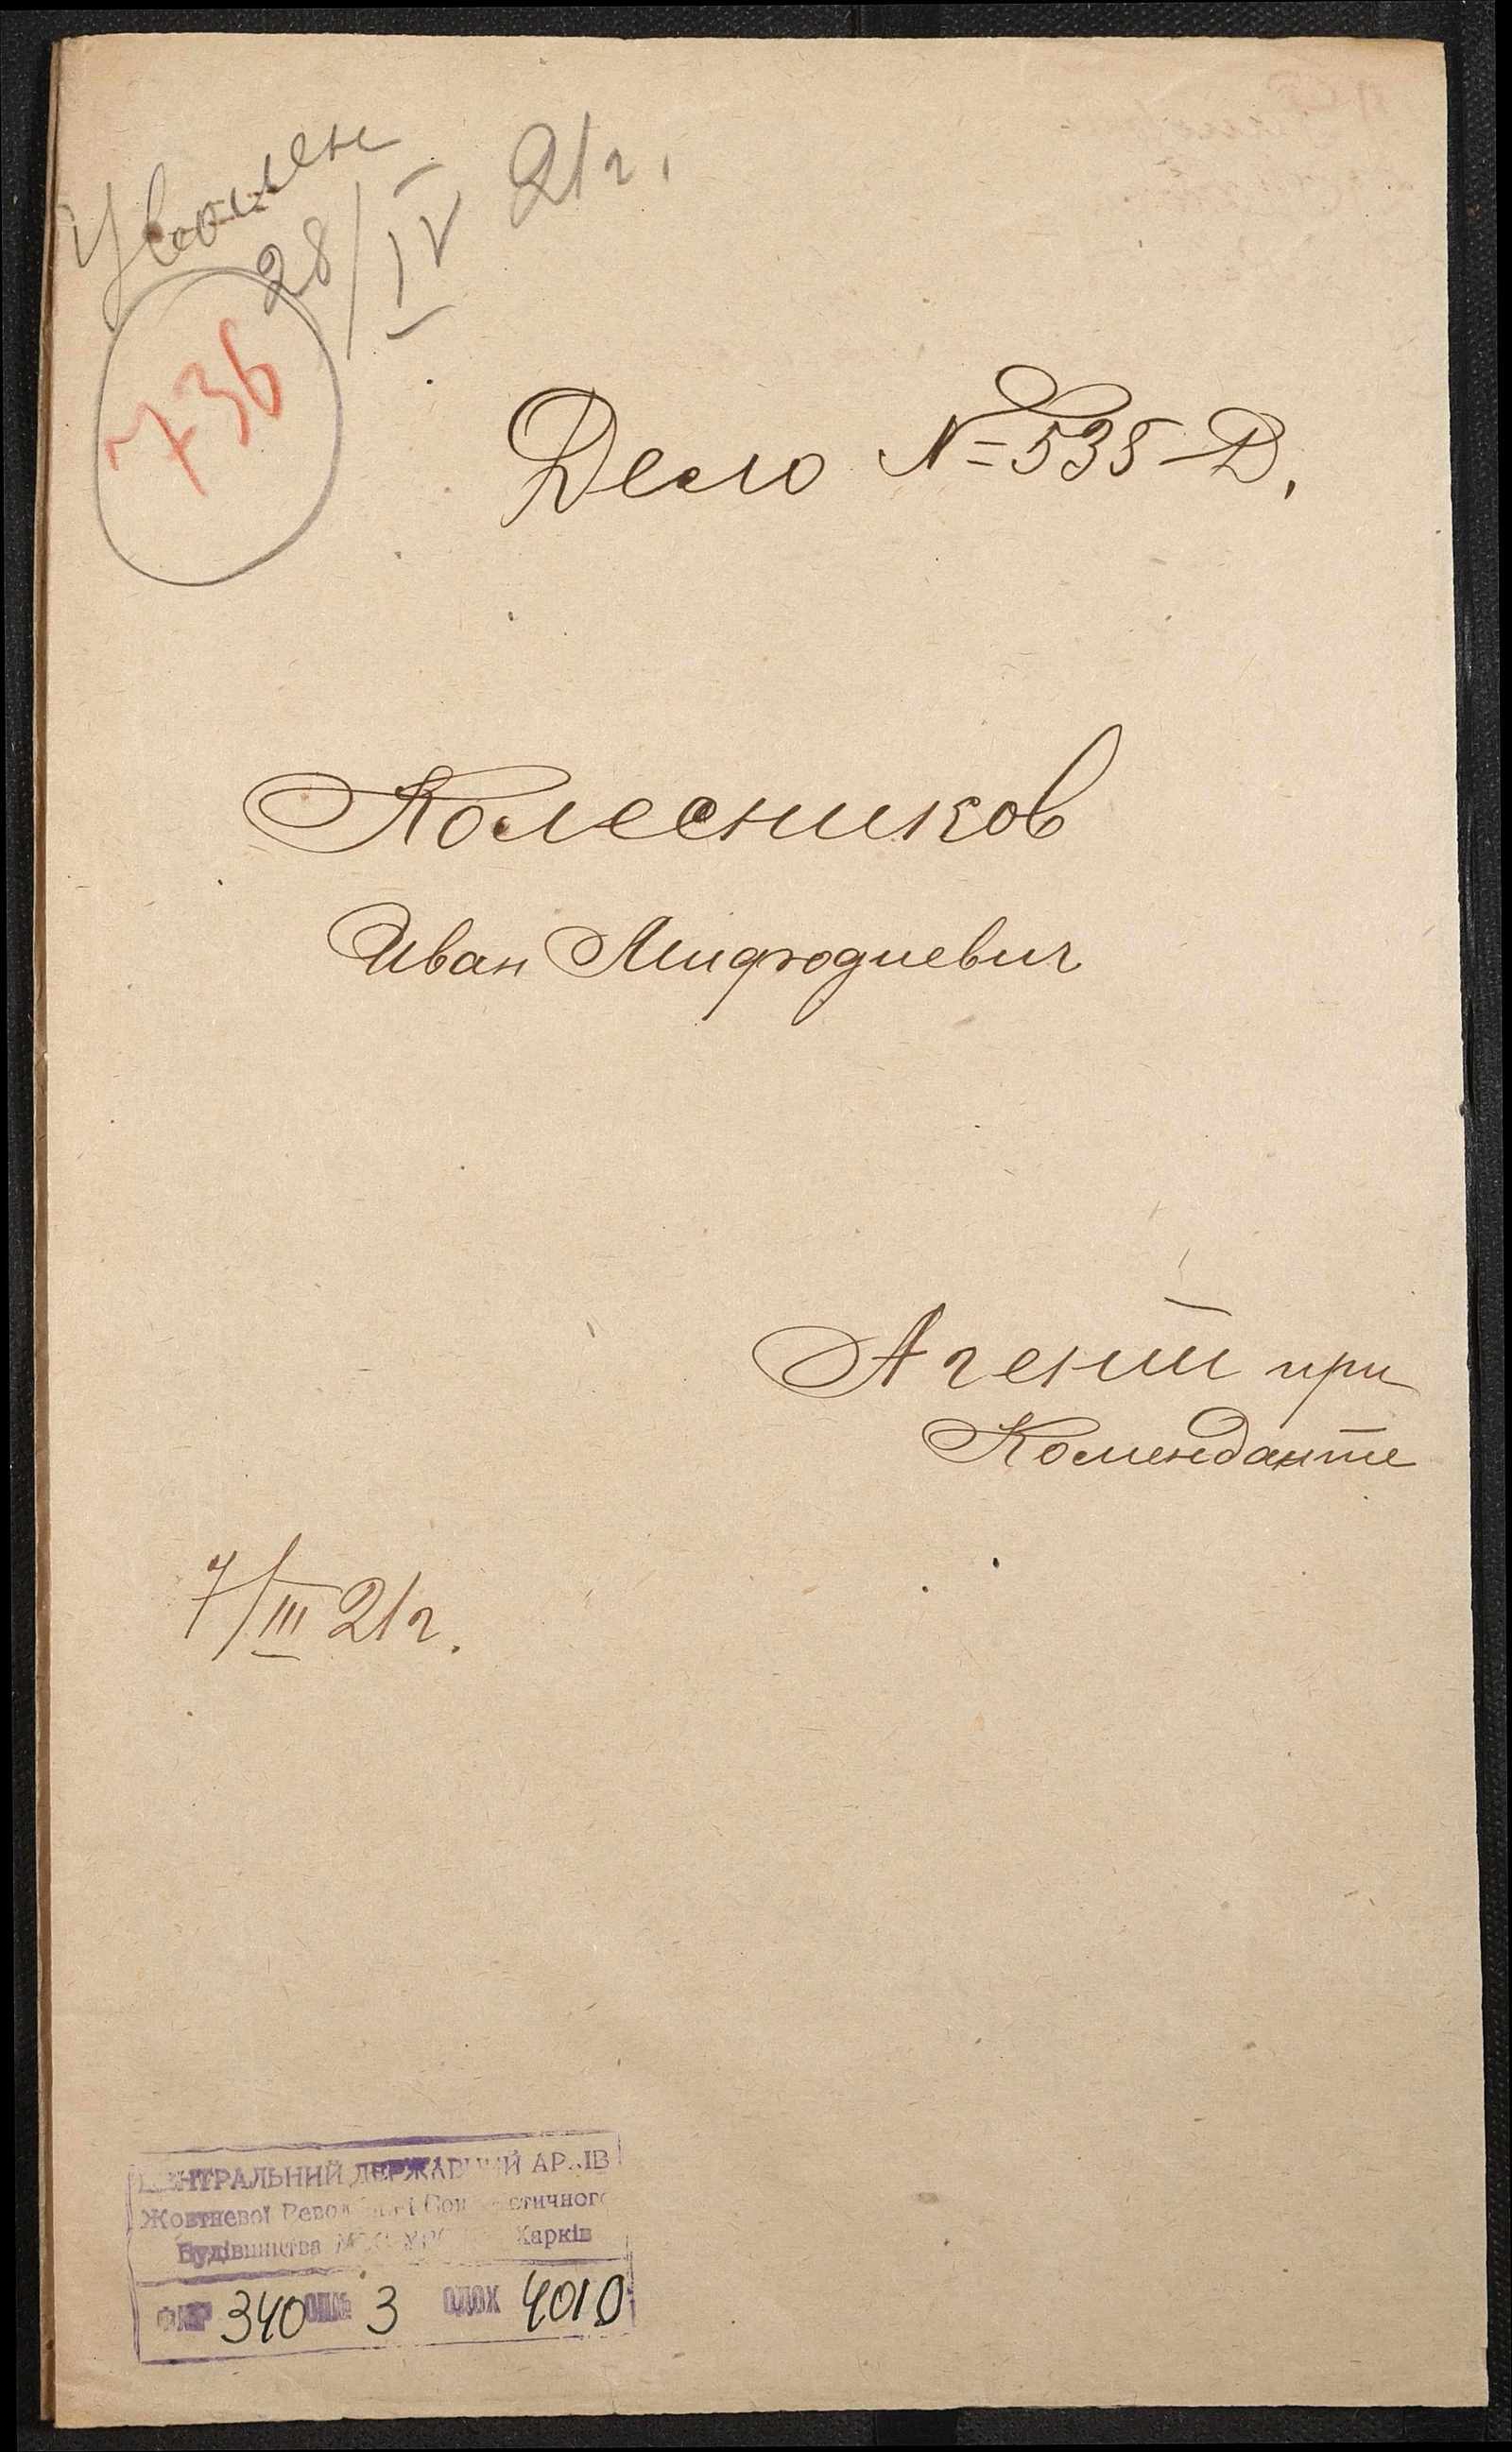 Уволен
28/IV 21г.
736
Дело №535-Д.
Колесников
Иван Мифодиевич
Агент при
Коменданте
7/III 21г.
ЦЕНТРАЛЬНИЙ ДЕРЖАВНИЙ АРХІВ
Жовтневої Революції і Соціалістичного
Будівництва УРСР Харків
ФЛ№Р 340 ОП№ 3 ОДОХ 4010